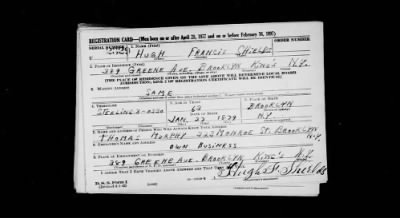 REGISTRATION CARD—(Men born on or after April 28, 1877 and on or before February 16, 1897)
SERIAL NUMBER 1. NAME (Print) ORDER NUMBER
HUGH FRANCIS SHIELDS
2. PLACE OF RESIDENCE (Print)
389 GREENE AVE. BROOKLYN KING'S N.Y.
[THE PLACE OF RESIDENCE GIVEN ON THE LINE ABOVE WILL DETERMINE LOCAL BOARD
JURISDICTION; LINE 2 OF REGISTRATION CERTIFICATE WILL BE IDENTICAL]
3. MAILING ADDRESS
SAME
4. TELEPHONE 5. AGE IN YEARS 6. PLACE OF BIRTH
63 BROOKLYN
STERLING 3-0330 DATE OF BIRTH
JAN. 22 1879 N.Y.
7. NAME AND ADDRESS OF PERSON WHO WILL ALWAYS KNOW YOUR ADDRESS
THOMAS MURPHY 223 MONROE ST. BROOKLYN N.Y.
8. EMPLOYER'S NAME AND ADDRESS
OWN BUSINESS
9. PLACE OF EMPLOYMENT OR BUSINESS
389 GREENE AVE. BROOKLYN KING'S N.Y.
I AFFIRM THAT I HAVE VERIFIED ABOVE ANSWERS AND THAT THEY ARE TRUE.
D. S. S. Form 1
Hugh F. Shields